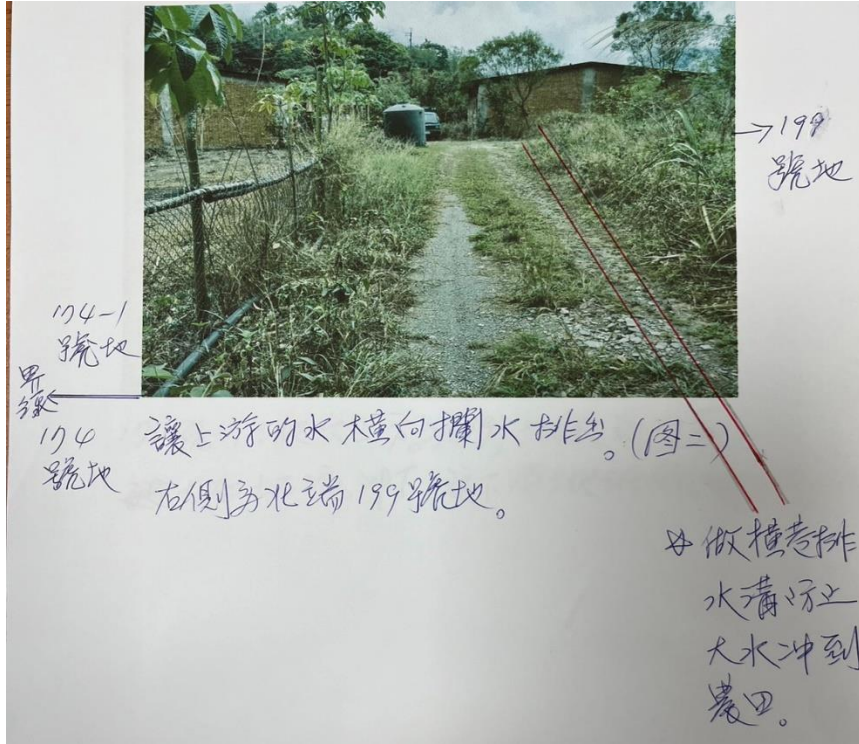 →199
號地
174-1
號地
界線
174
號地
讓上游的水橫向攔水排出。(图二)
右側為北端199號地。
做橫巷排
水溝防止
大水冲到
農田。